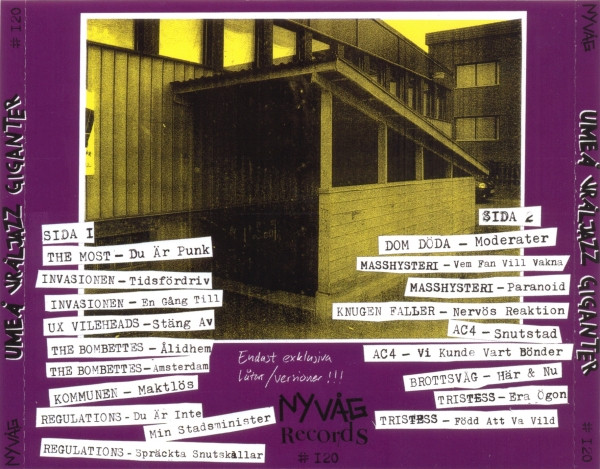 NYVÅG
UMEÅ VRÅLJAZZ GIGANTER
# I20
SIDA I
THE MOST – Du Är Punk
INVASIONEN – Tidsfördriv
INVASIONEN – En Gång Till
UX VILEHEADS – Stäng Av
THE BOMBETTES – Ålidhem
THE BOMBETTES – Amsterdam
KOMMUNEN – Maktlös
REGULATIONS – Du Är Inte
Min Stadsminister
REGULATIONS – Spräckta Snutskallar
SIDA 2
DOM DÖDA – Moderater
MASSHYSTERI – Vem Fan Vill Vakna
MASSHYSTERI – Paranoid
KNUGEN FALLER – Nervös Reaktion
AC4 – Snutstad
AC4 – Vi Kunde Vart Bönder
BROTTSVÅG – Här & Nu
TRISTESS – Era Ögon
TRISTESS – Född Att Va Vild
Endast exklusiva
Låtar/versioner!!!
NYVÅG
Records
# I20
NYVÅG
UMEÅ VRÅLJAZZ GIGANTER
# I20